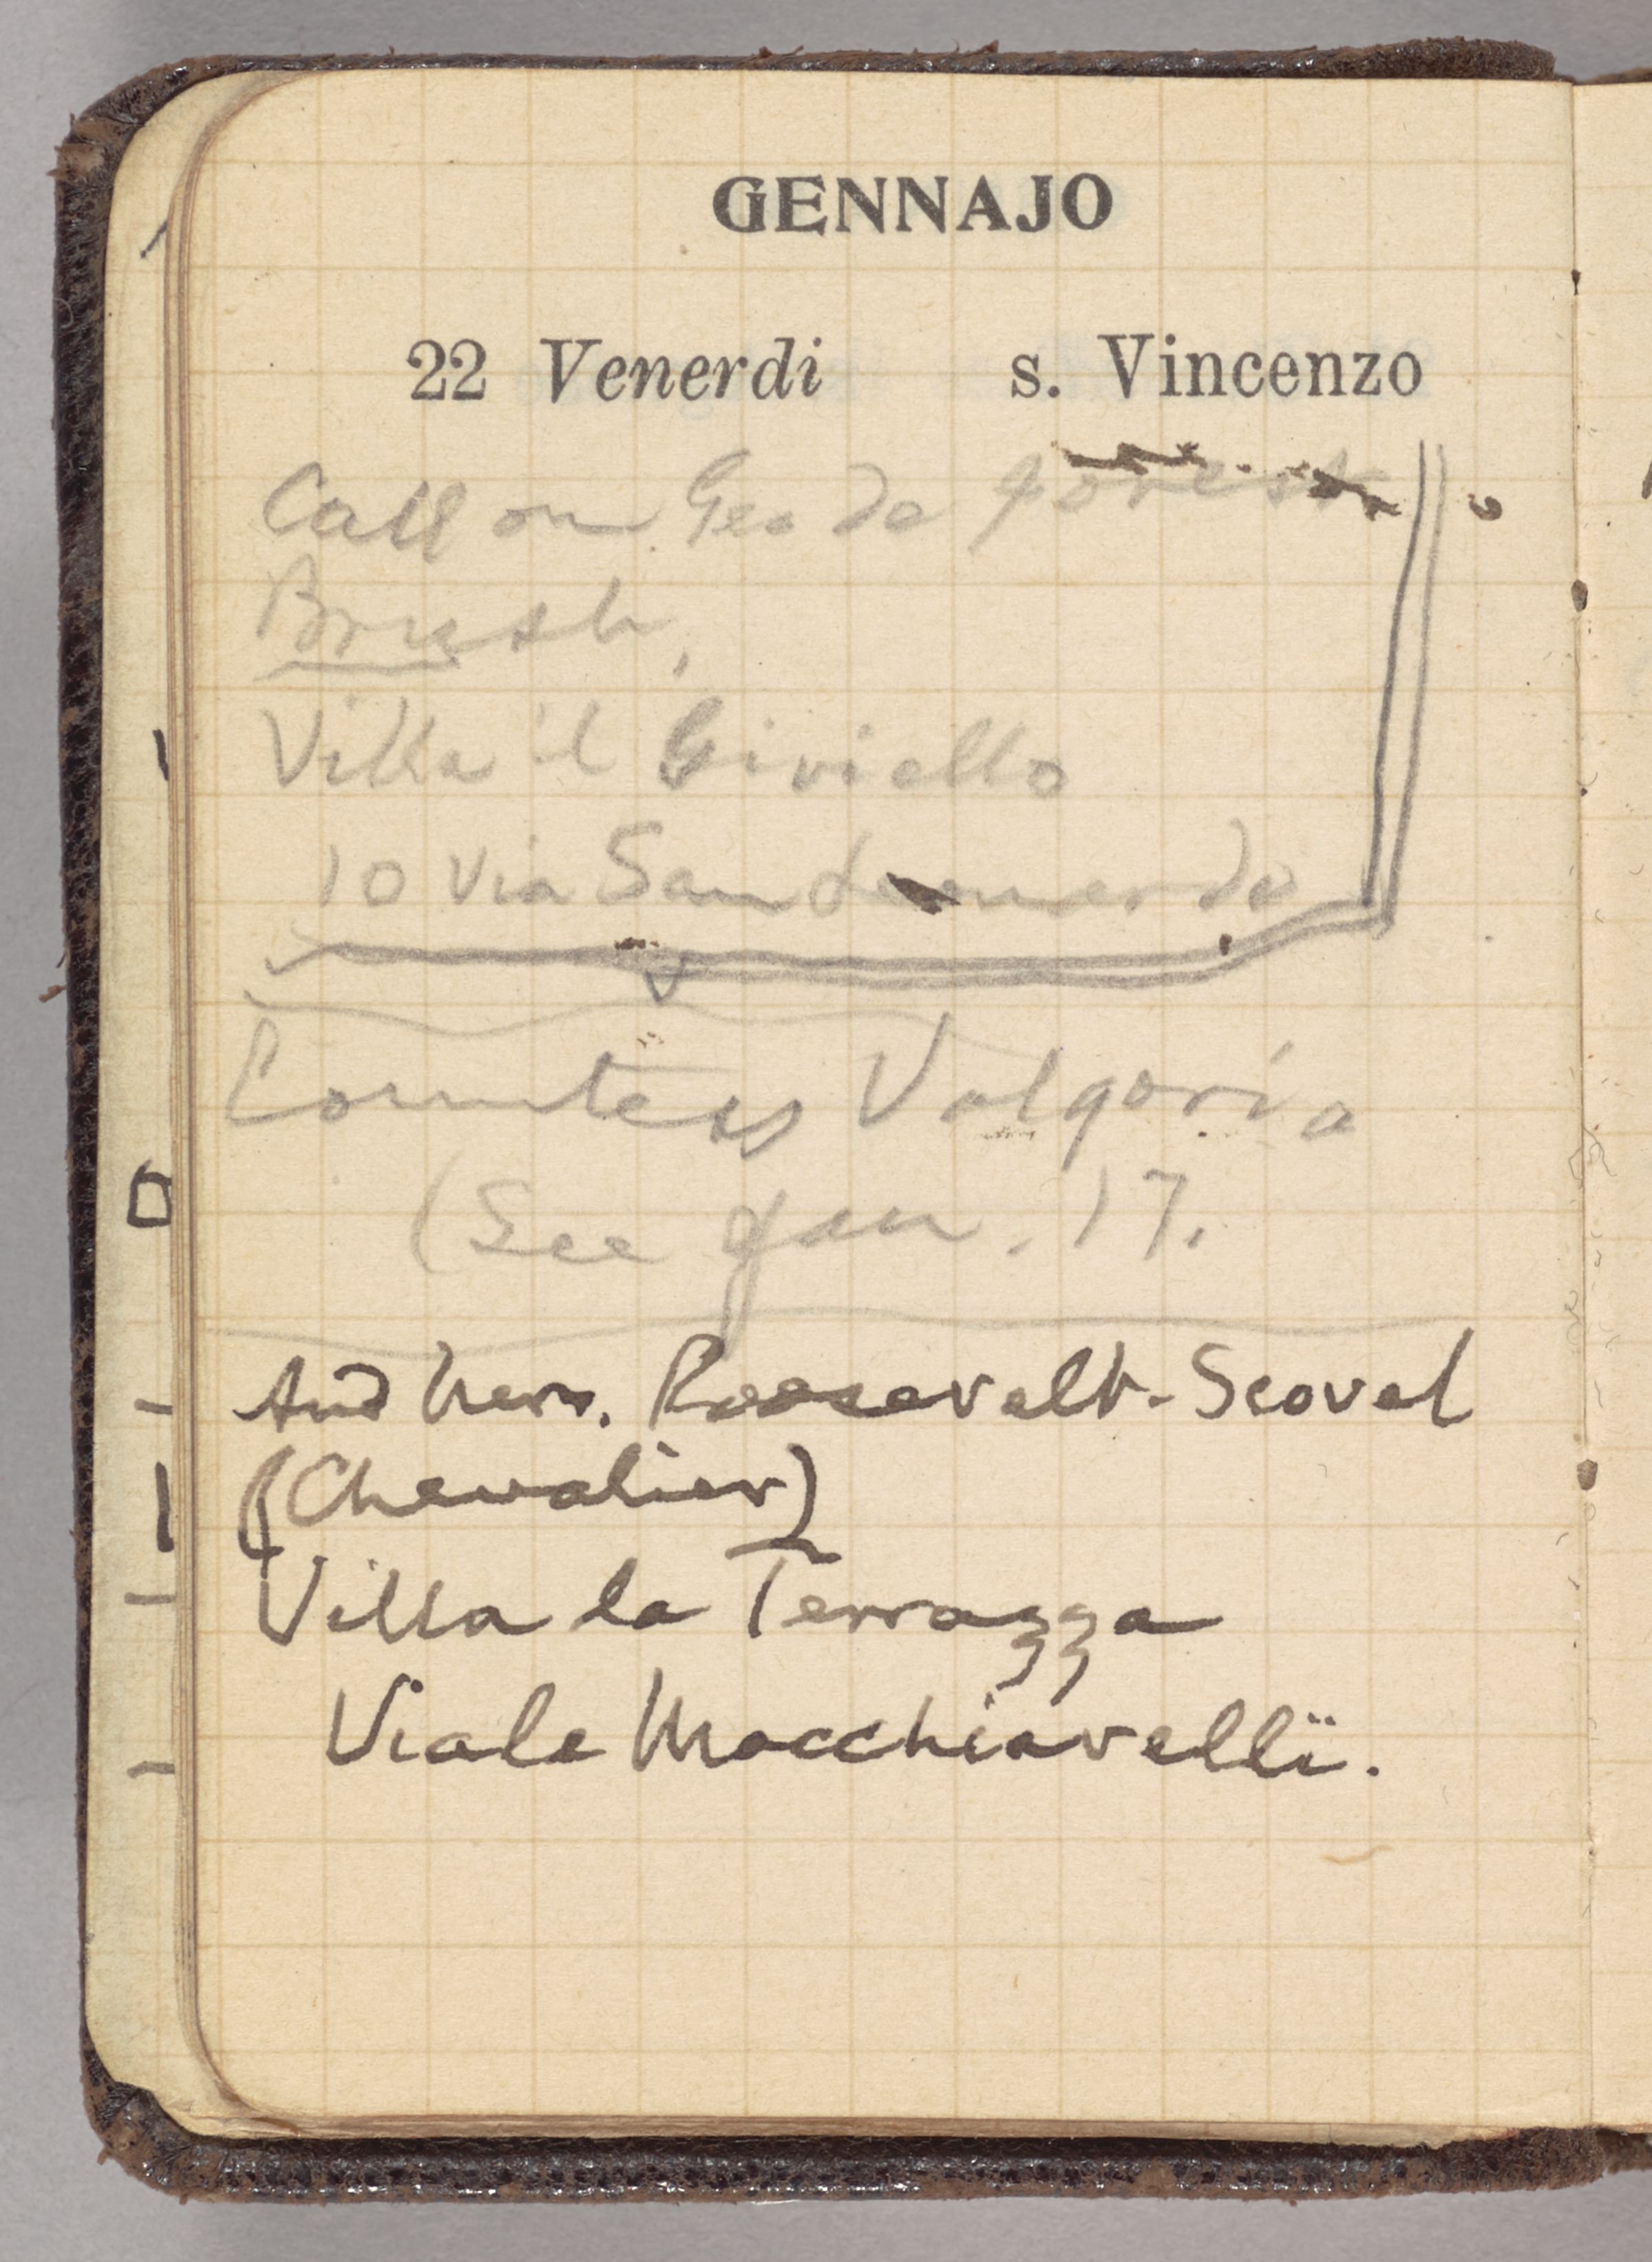 GENNAJO
22 Venerdi s. Vincenzo
Call on Geo de Forest
Brush,
Villa il Giviello
10 Via San Leonardo
Countess Valgoria
(See Jan. 17.
And Mrs. Roosevelt-Scovel
(Chevalier)
Villa la Terrazza
Viale Macchiavelli.